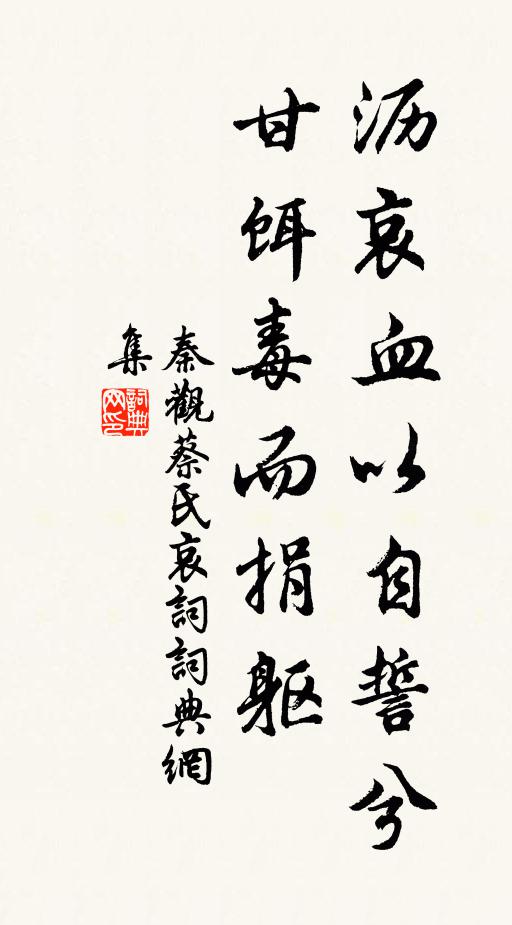 沥哀血以自誓兮
甘饵毒而捐躯
秦觀蔡氏哀詞詞典網
集
詞典
网印